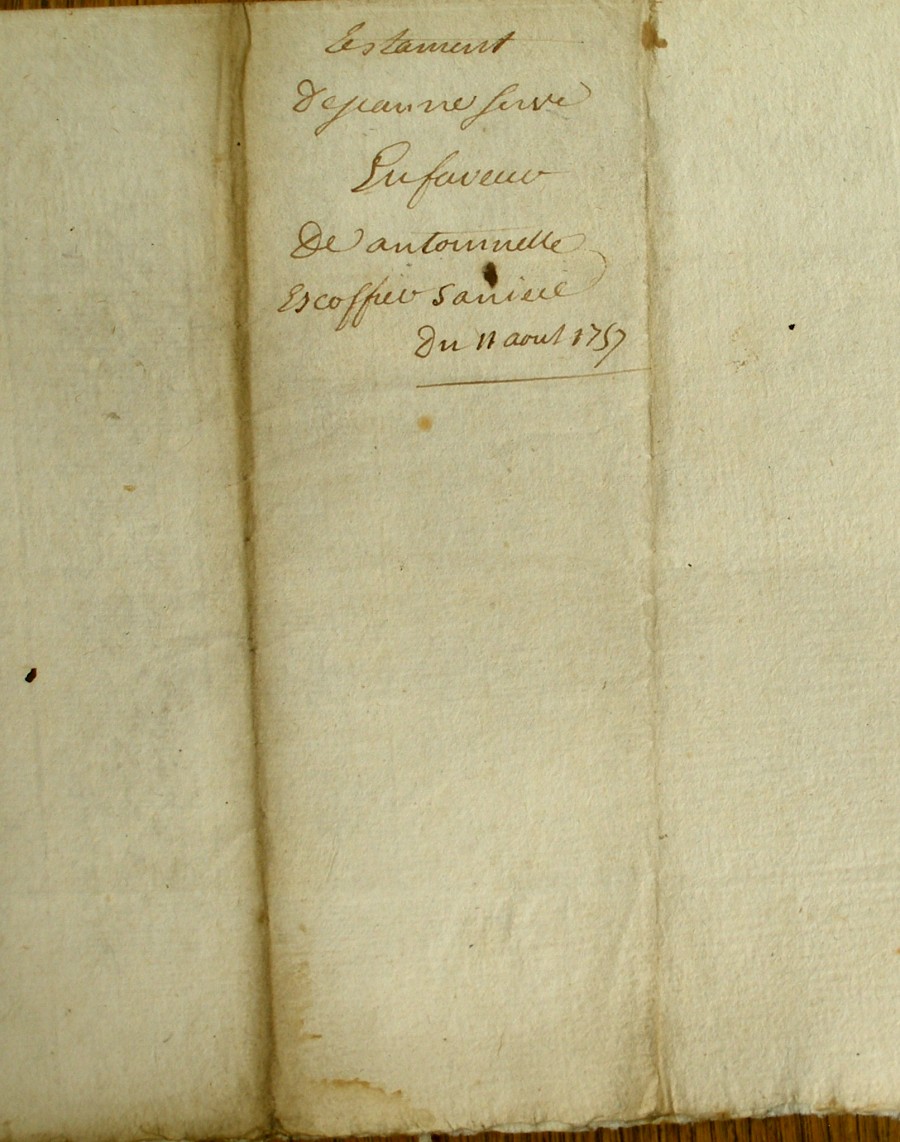 testament
De jeanne serve
En faveur
De antoinnelle
Escoffier sa niece
Du 11 aout 1757